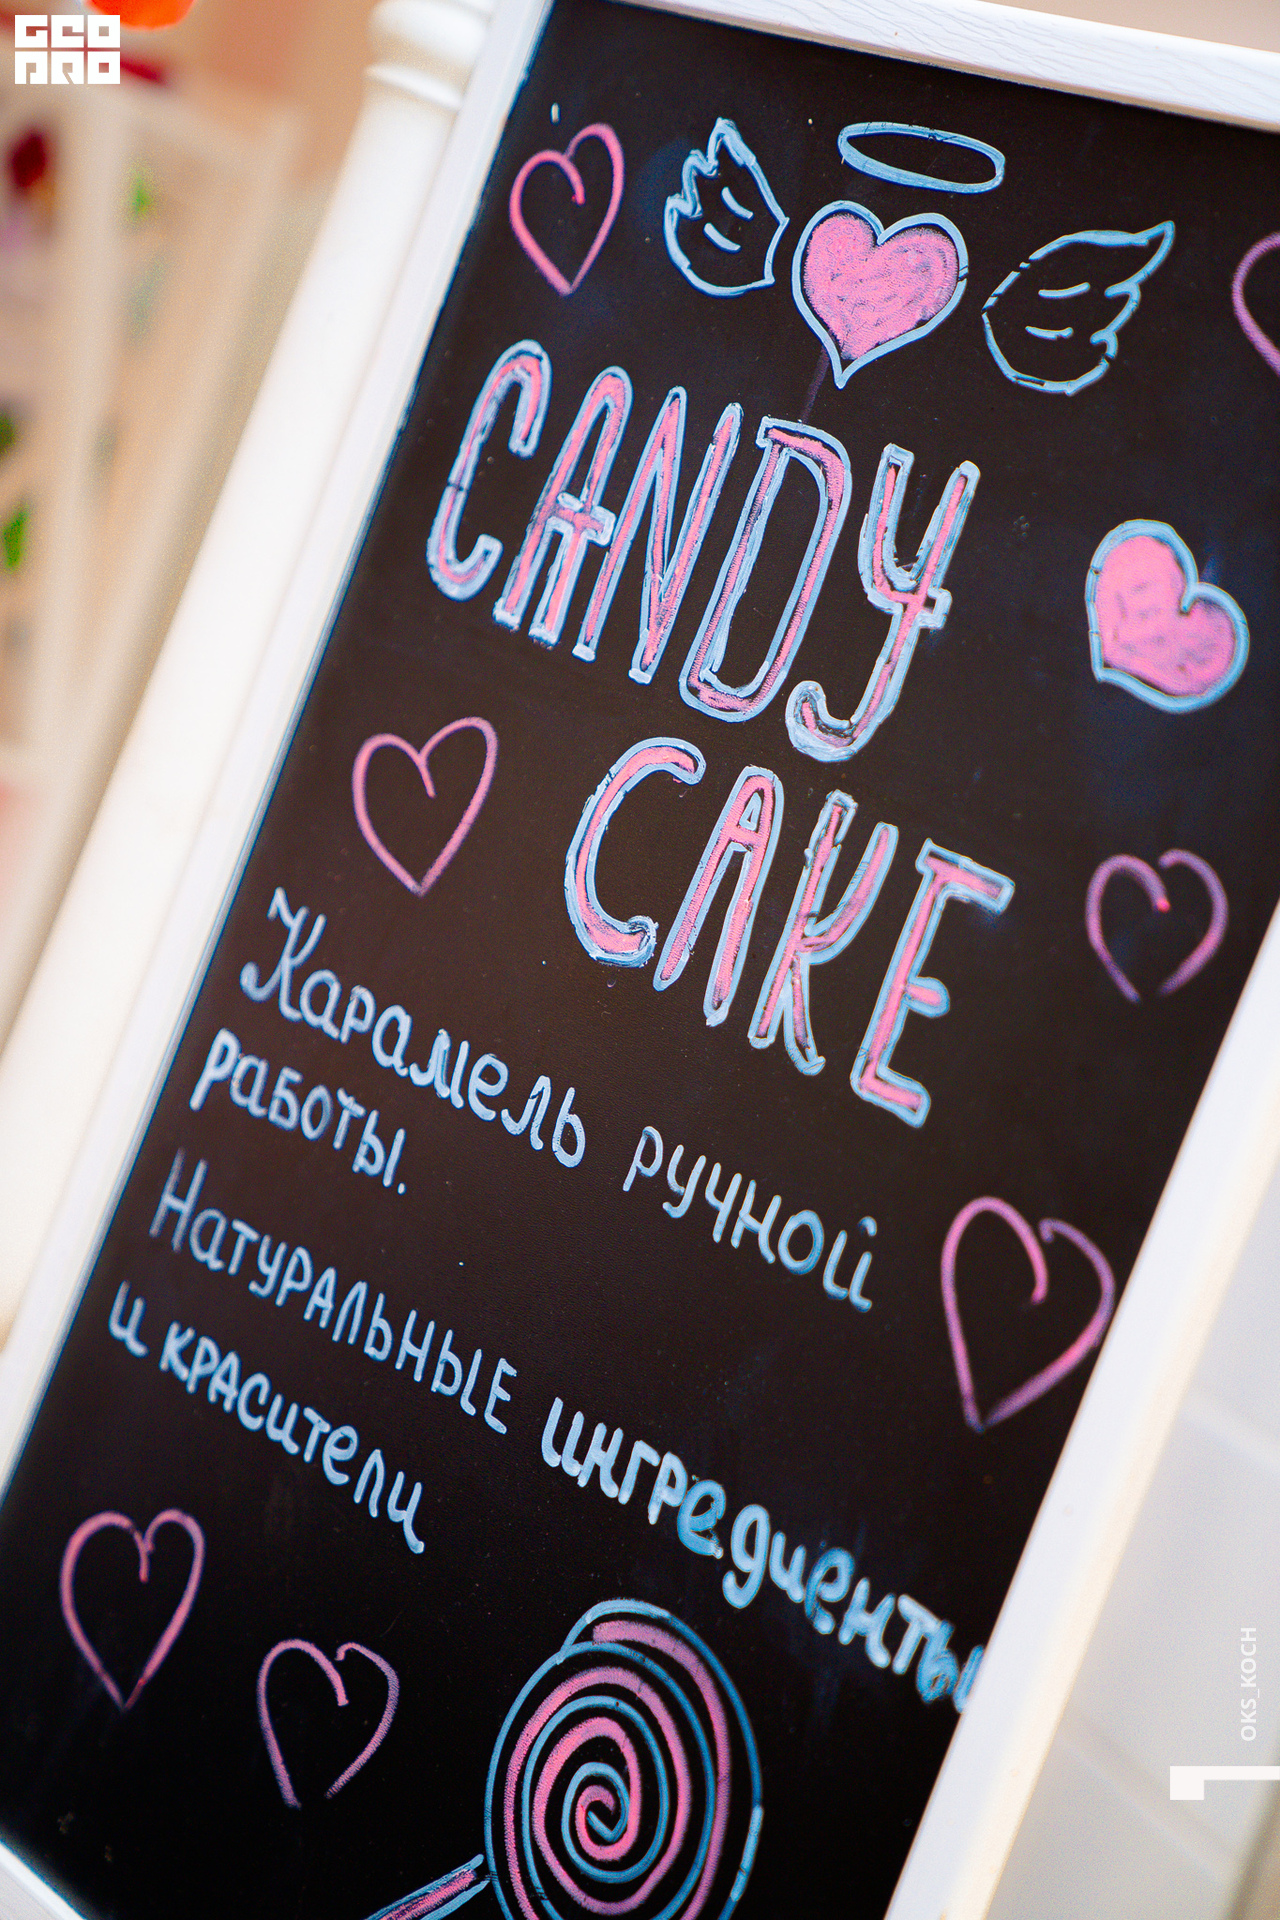 GEO
PRO
CANDY
CAKE
Карамель ручной
работы.
Натуральные ингредиенты
и красители
OKS_KOCH